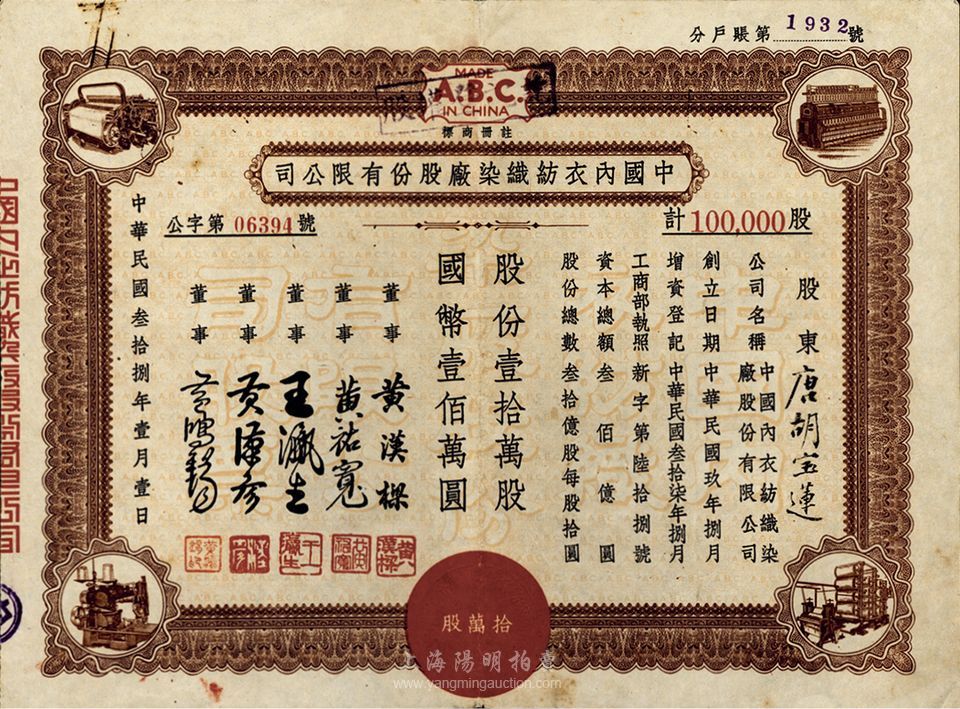 分戶賬第1932號
MADE
A.B.C.
IN CHINA
註冊商標
中國內衣紡織染廠股份有限公司
計100,000股
公字第06394號
股東唐胡宝蓮
公司名稱中國內衣紡織染廠股份有限公司
創立日期中華民國玖年捌月
增資登記中華民國叁拾柒年捌月
工商部執照新字第陸拾捌號
資本總額叁佰億圓
股份總數叁拾億股每股拾圓
股份壹拾萬股
國幣壹佰萬圓
董事黃漢樑
董事黃祐寬
董事王瀛生
董事黃漢彥
董事
中華民國叁拾捌年壹月壹日
拾萬股
上海陽明拍賣
www.yangmingauction.com